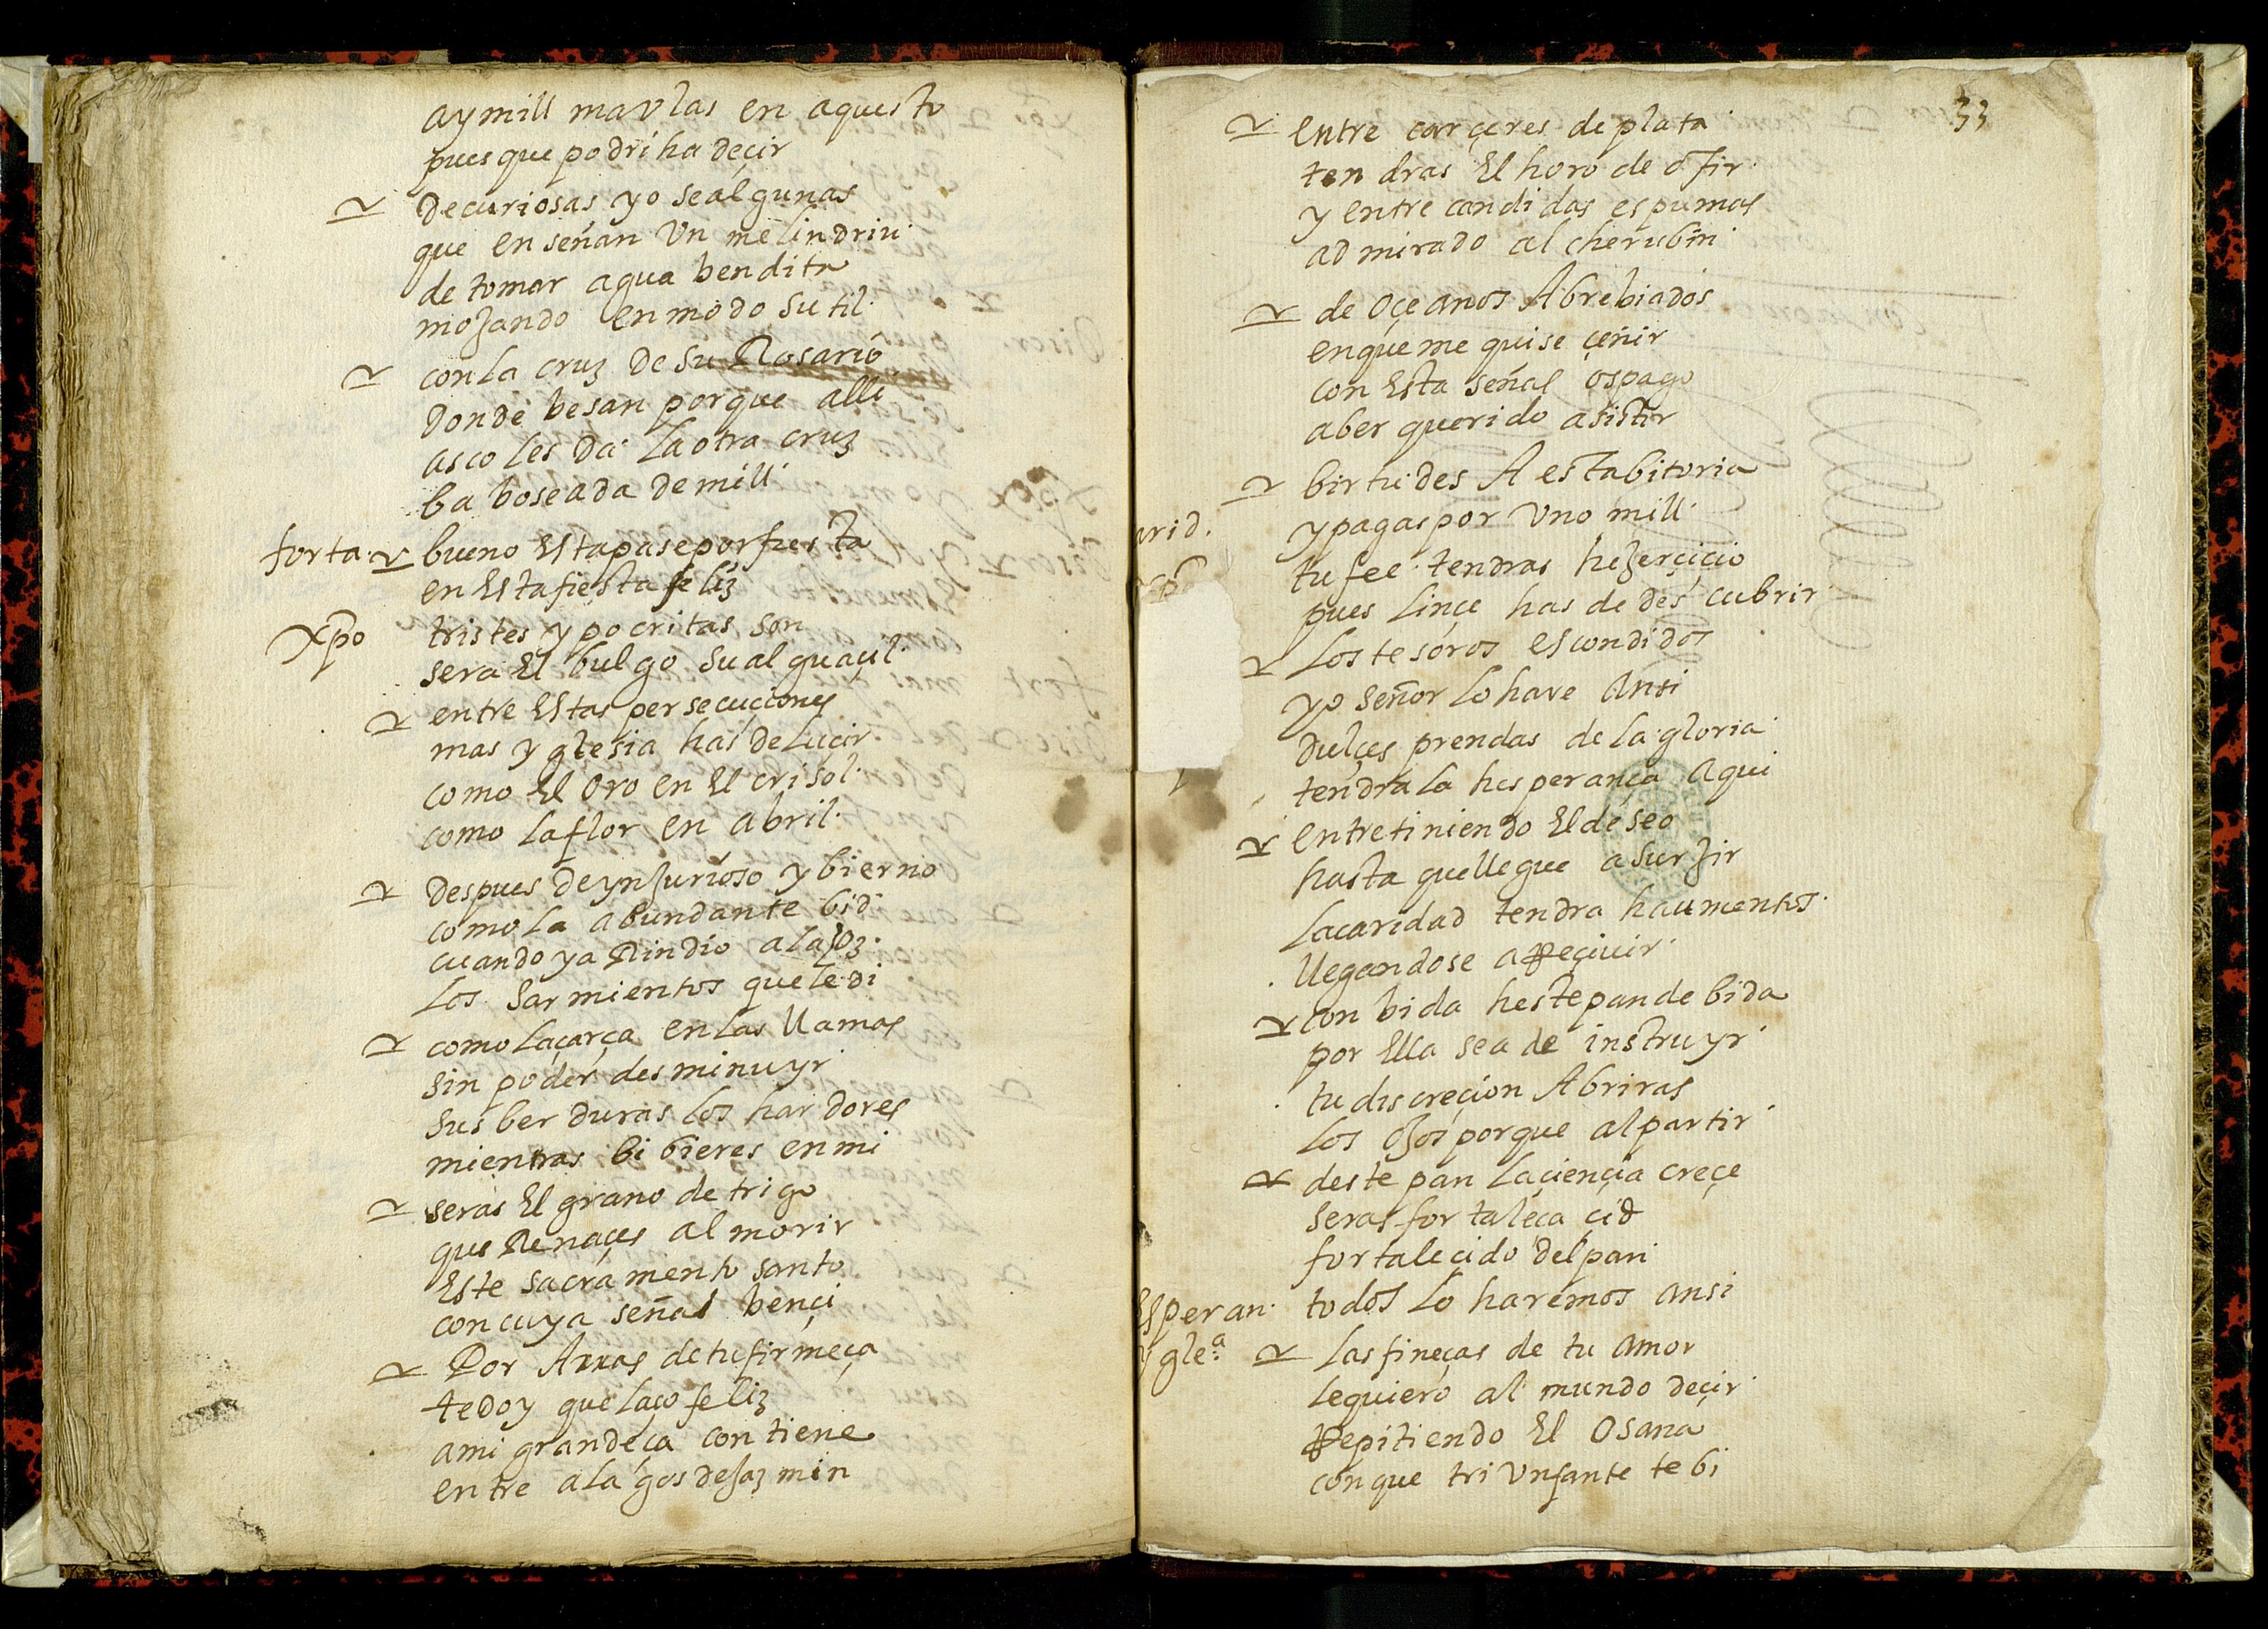 aymill mavlas en aquesto
pues que podriha deçir
R decuriosas yo se algunas
que enseñan Un melindriu
de tomar agua bendita
mojando en modo sutil
R con la cruz de su Rosario
donde besan porque alli
asco les da la otra cruz
baboseada de mill
forta. R bueno Esta pase por fiesta
en Esta fiesta feliz
Xpo tristes ypocritas son
sera El bulgo su alguaçil
R entre Estas persecuçiones
mas yglesia has de Luçir
como El oro en El crisol
como la flor en abril
R despues de ynjurioso ybierno
como la abundante bid
cuando ya Rindio a la foz
los sarmientos que le di
R como laçarça en las llamas
sin poder desminuyr
sus berduras los hardores
mientras bibieres en mi
R seras El grano de trigo
que Renaçes al morir
Este sacramento santo
con cuya señal bençi
R Por Arras de tu firmeça
te doy que laço feliz
a mi grandeça contiene
entre alagos de jazmin
33
R entre carçeres de plata
tendras El horo de ofir
y entre candidas espumas
admirado al cherubin
R de oçeanos Abrebiados
en que me quise çeñir
con Esta señal os pago
aber querido asistir
R birtudes A esta bitoria
urid. y pagas por Uno mill
tu fee tendras hejerçicio
pues linçe has de descubrir
R Los tesoros escondidos
yo señor lo hare Ansi
dulçes prendas de la gloria
tendra la hesperança aqui
R entretiniendo El deseo
hasta que llegue a surjir
la caridad tendra haumentos
llegandose a Reçiuir
R con bida heste pan de bida
por Ella sea de instruyr
tu discreçion Abriras
los ojos porque al partir
R deste pan la çiençia creçe
seras fortaleça çid
fortaleçido del pan
Esperan. todos lo haremos ansi
ygleª R Las fineças de tu amor
le quiero al mundo deçir
Repitiendo El Osana
con que triUnfante te bi